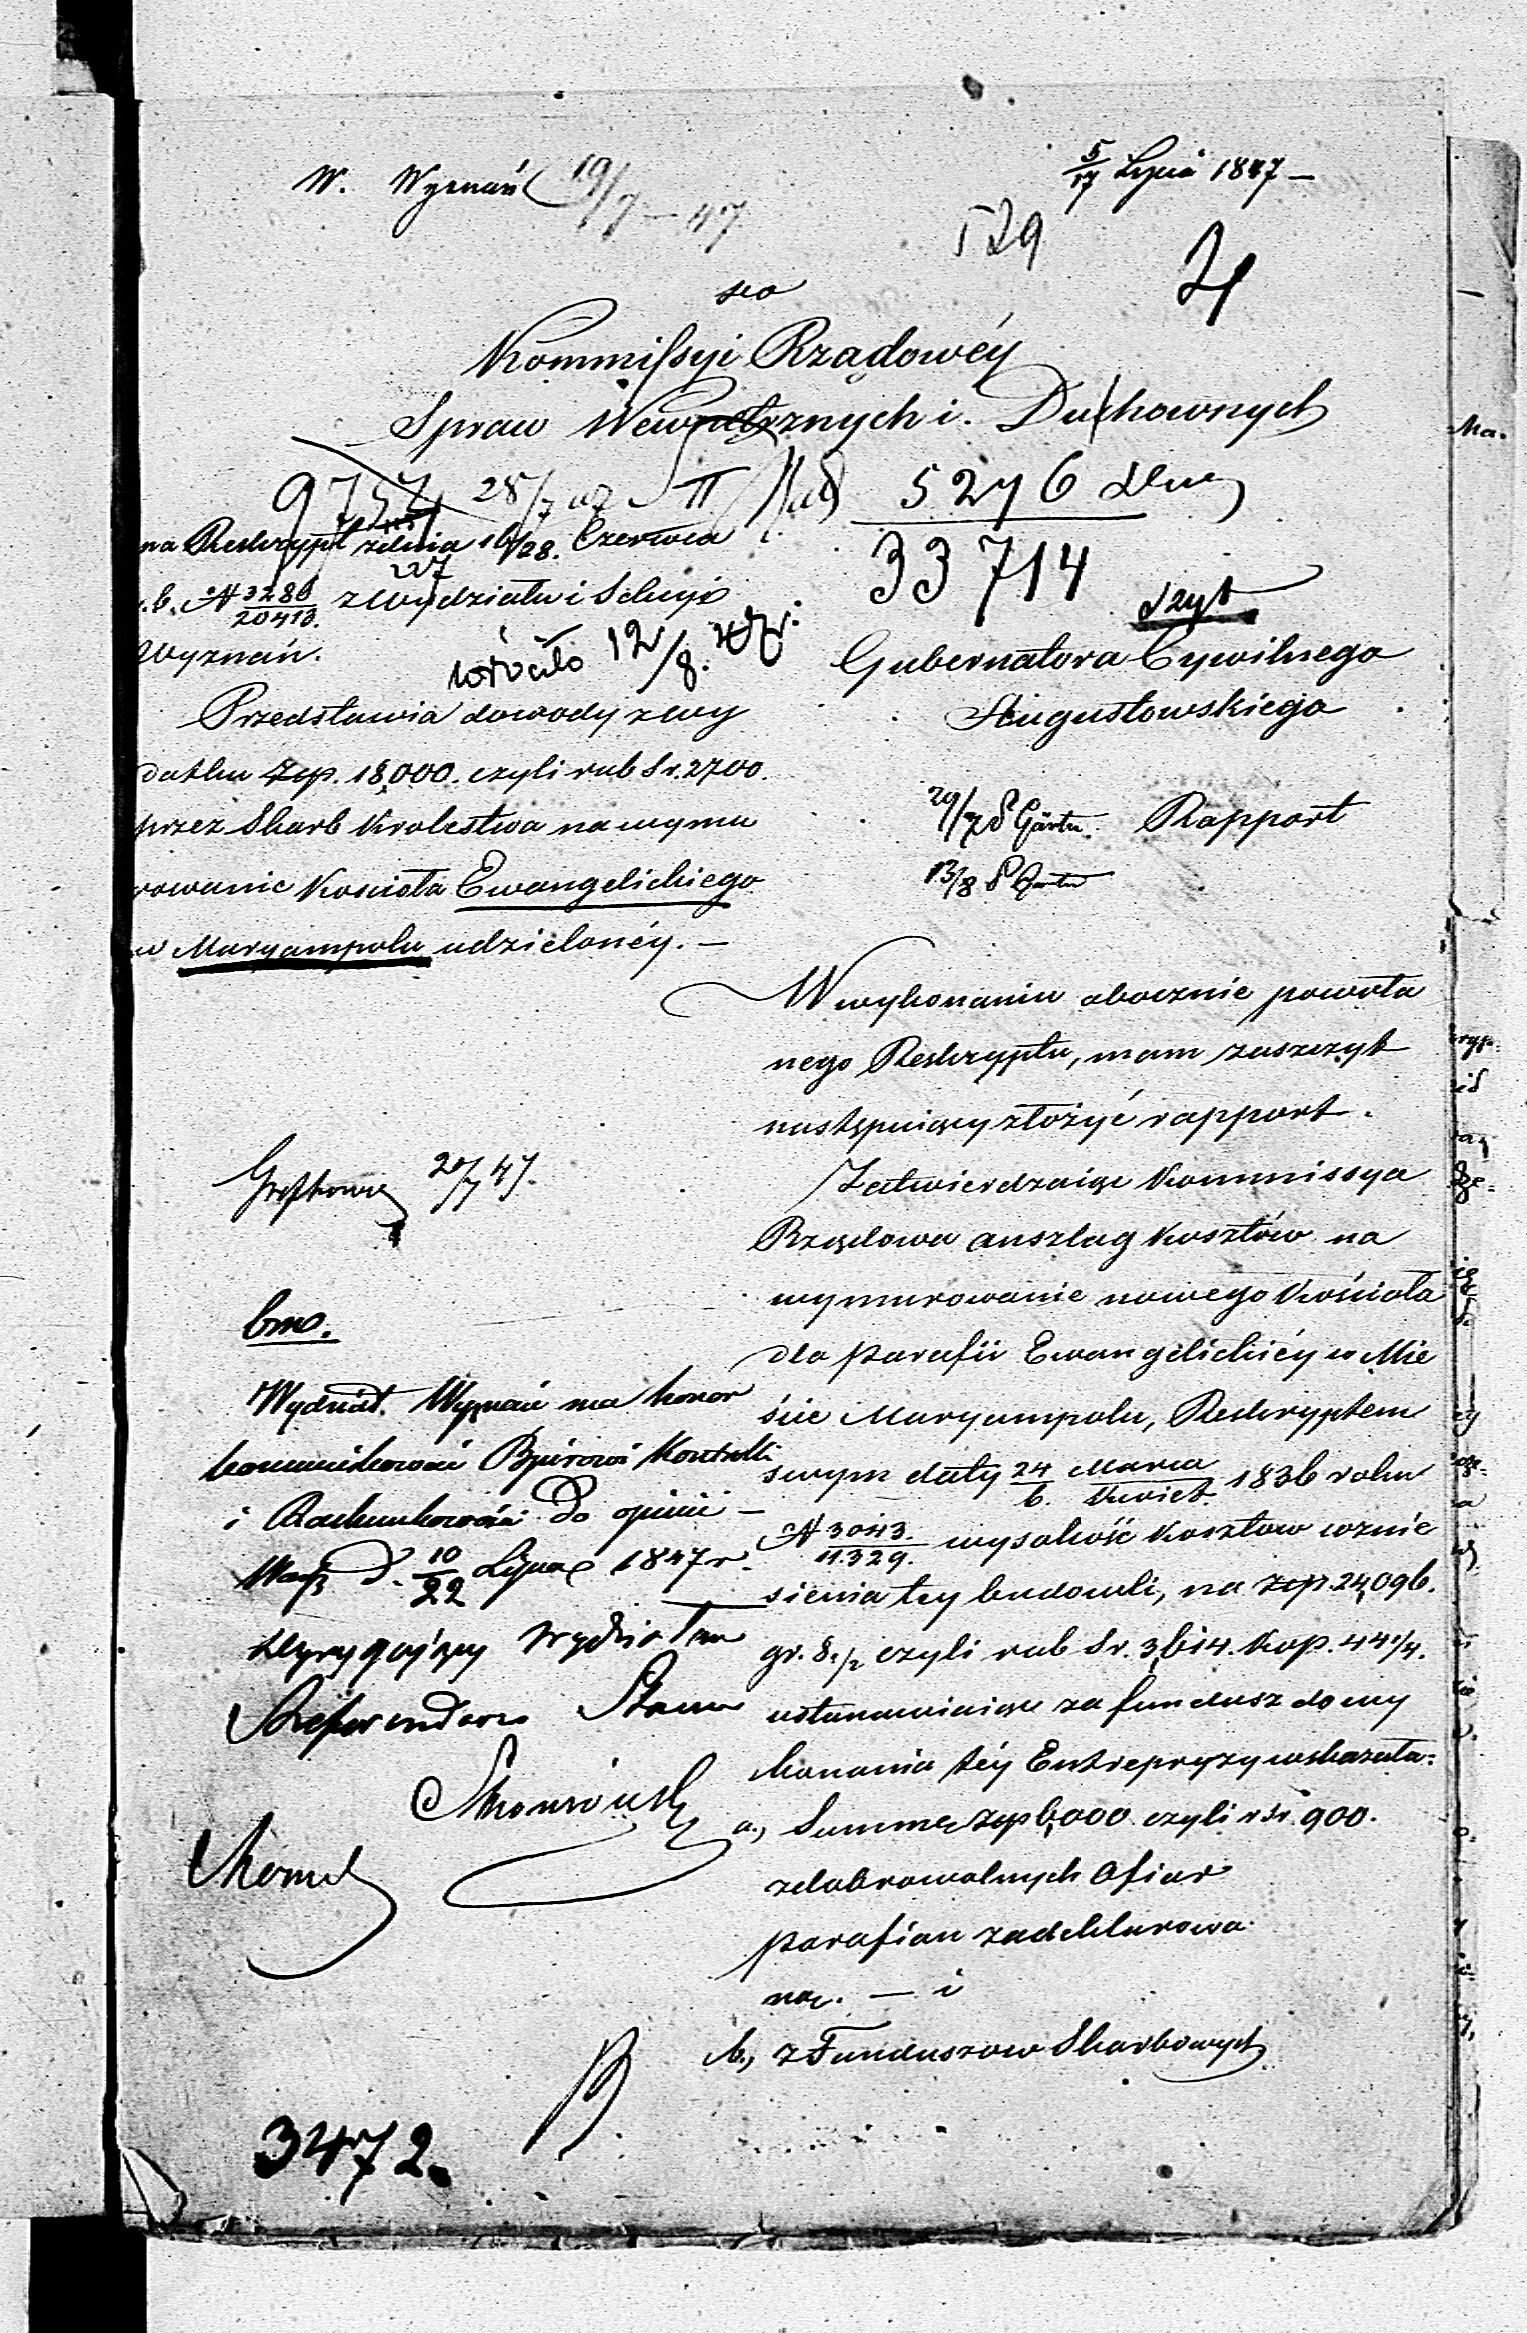 W. Wyznań 19/7 – 47
5/17 Lipca 1847 –
529
Do
Kommissyi Rządowéy
Spraw Wewnętrznych i Duchownych
9757 28/7 47 II
5276
33714
na Reskrypt z dnia 16/28. Czerwca
r. b. N 3286/20413. z Wydziału i Sekcyi
Wyznań.
wróciło 12/8.
Gubernatora Cywilnego
Augustowskiego
Rapport
29/7
13/8
Przedstawia dowody z wy
datku Złp. 18,000. czyli rub Sr. 2700.
przez Skarb Krolestwa na wymu
rowanie Kościoła Ewangelickiego
w Maryampolu udzielonéy. –
W wykonaniu obocznie powoła
nego Reskryptu, mam zaszczyt
następuiący złożyć rapport.
Zatwierdzaiąc Kommissya
Rządowa anszlag kosztów na
wymurowanie nowego Kościoła
dla parafii Ewangelickiéy w Mie
ście Maryampolu, Reskryptem
swym daty 24 Marca/6. Kwiet. 1836 roku
N 3043./11.329. wysokość kosztow wznie
sienia tey budowli, na złp. 24,096.
gr. 8 1/2 czyli rub Sr. 3,614. kop. 44 1/4.
ustanawiaiąc za fundusz do wy
konania téy Entrepryzy wskazała:
a., Summę złp 6,000 czyli r Sr. 900.
z dobrowolnych ofiar
parafian zadeklarowa
ną. – i
b., z Funduszow Skarbowych
20/7 47.
bmo.
Wydział Wyznań ma honor
kommunikować Bjurowi Kontrolli
i Rachunkowości do opinii –
Warsz d. 10/22 Lipca 1847 r.
Dyrygujący Wydziałem
Referendarz Stanu
3472.